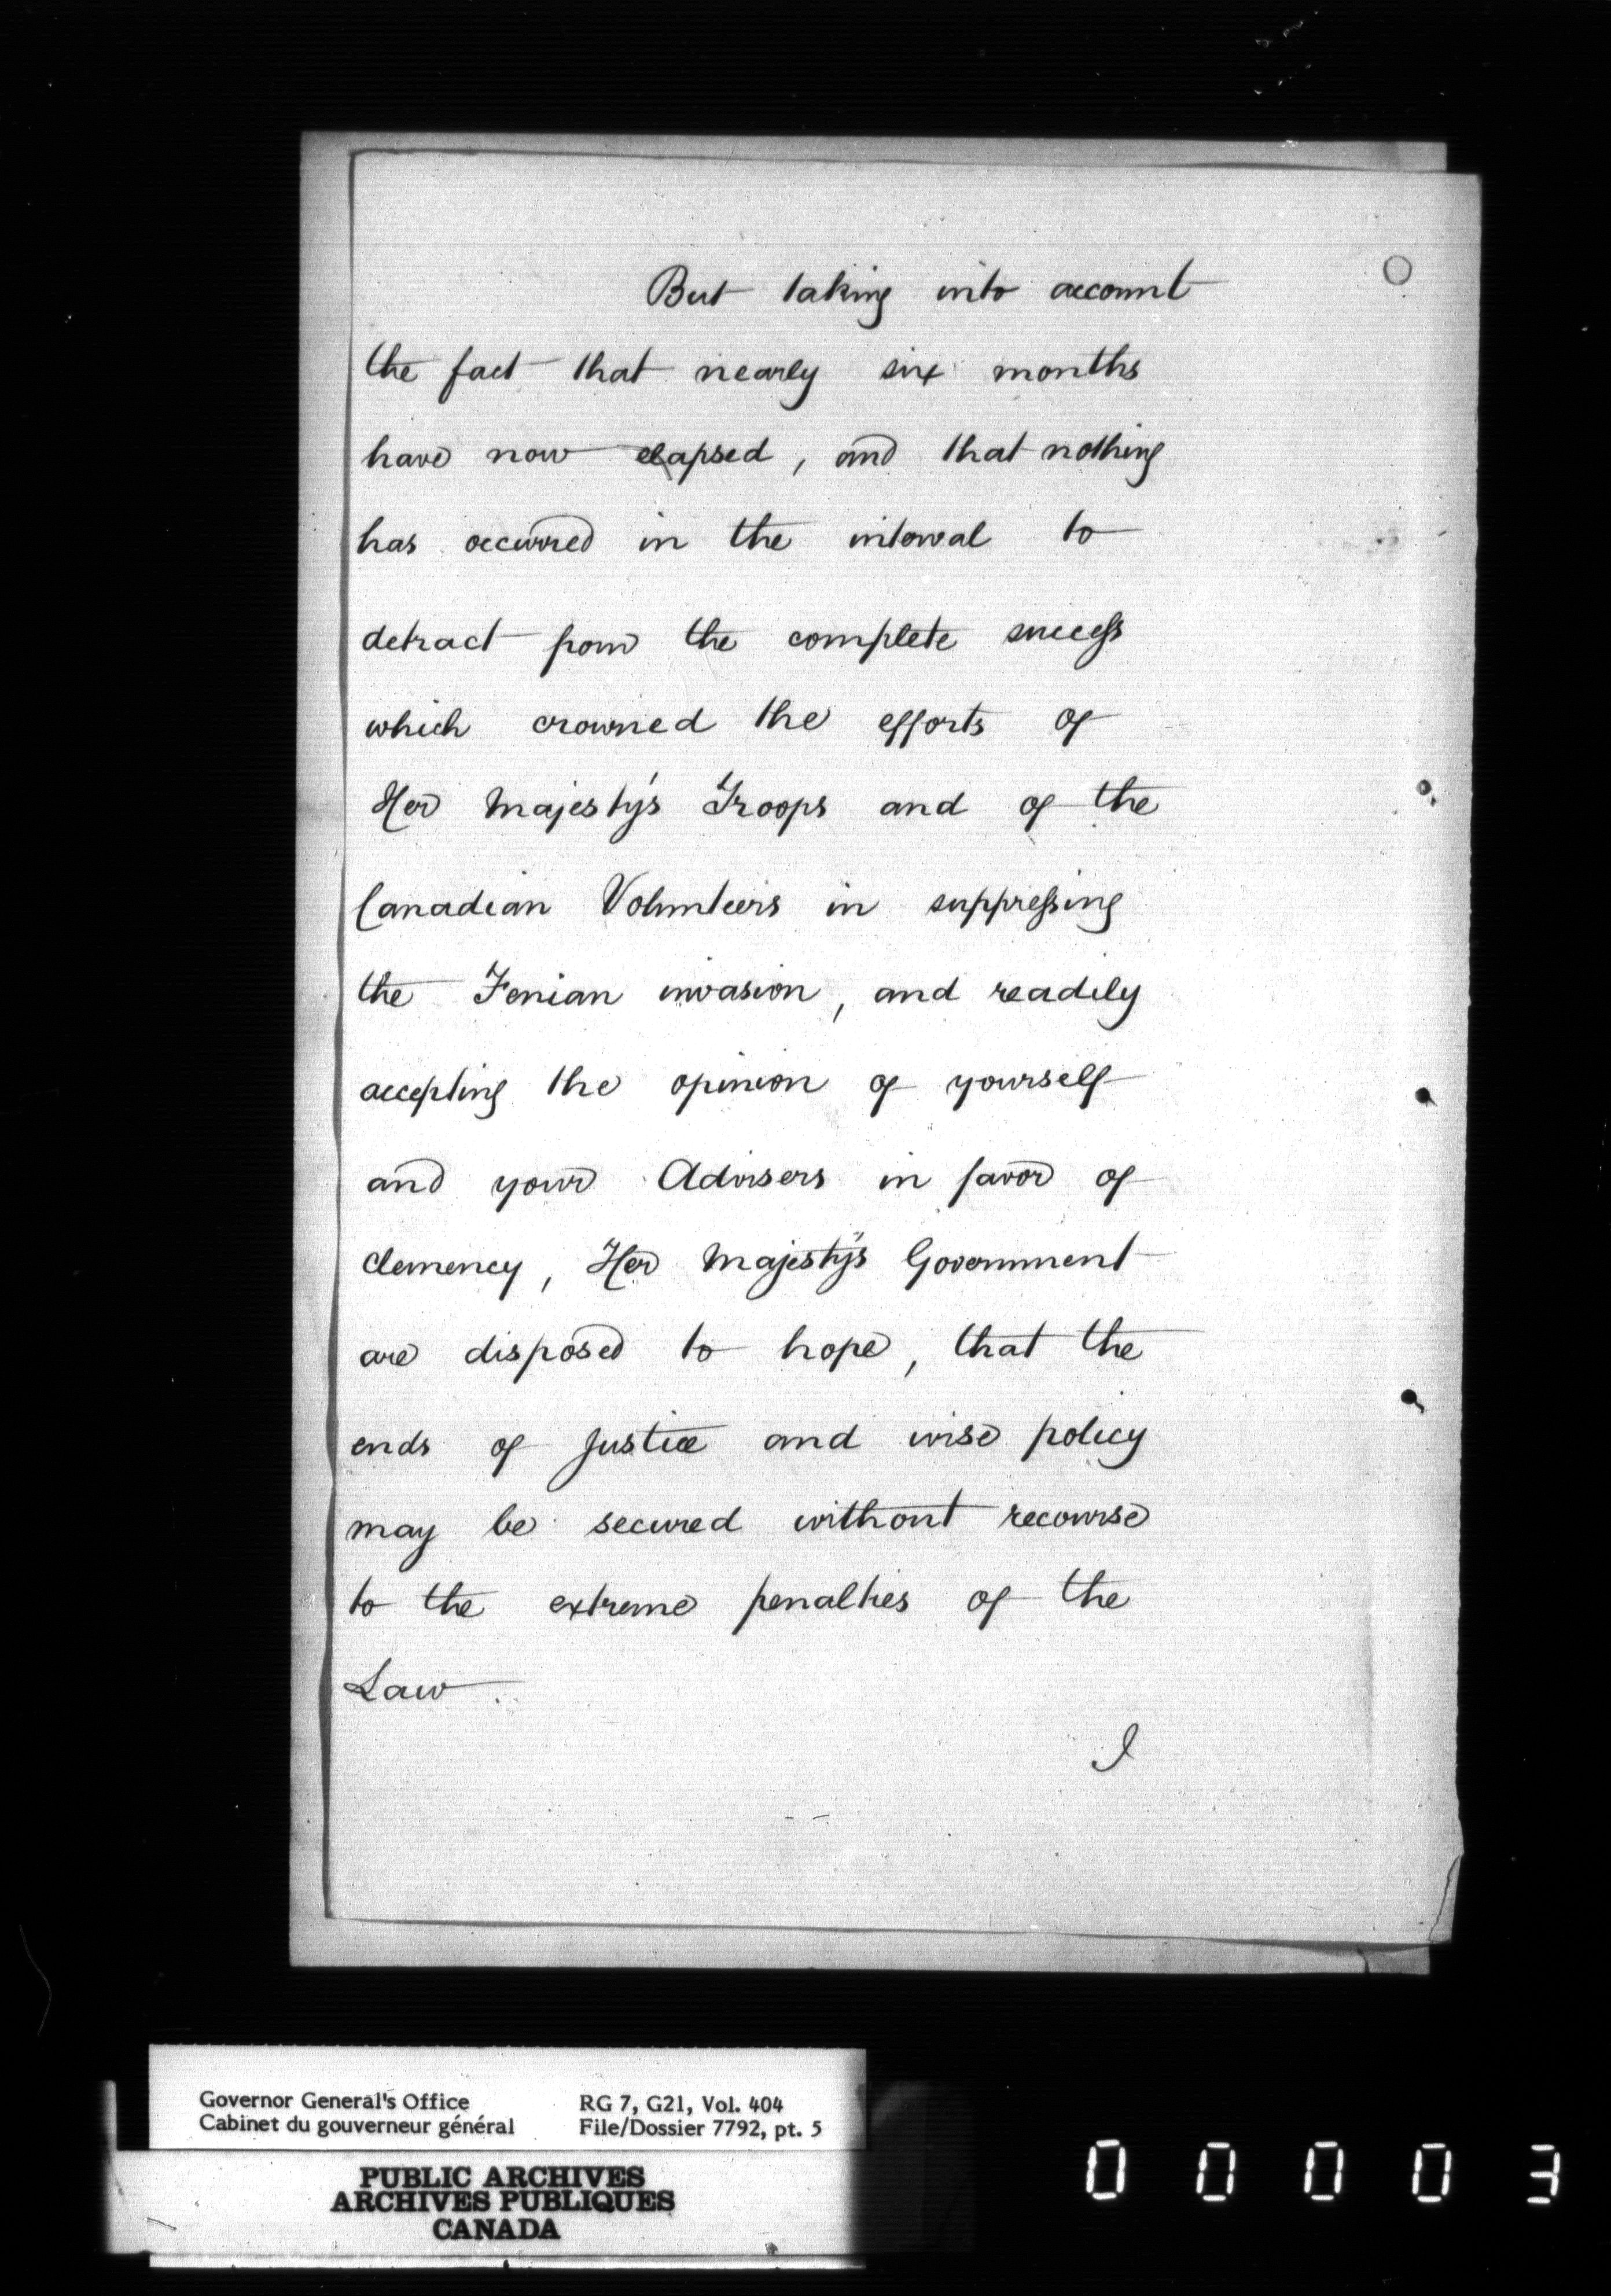 But taking into account
the fact that nearly six months
have now elapsed, and that nothing
has occurred in the interval to
detract from the complete success
which crowned the efforts of
Her Majesty's Troops and of the
Canadian Volunteers in suppressing
the Fenian invasion, and readily
accepting the opinion of yourself
and your Advisers in favor of
clemency, Her Majesty's Government
are disposed to hope, that the
ends of Justice and wise policy
may be secured without recourse
to the extreme penalties of the
Law.
I
Governor General's Office RG 7, G21, Vol. 404
Cabinet du gouverneur général File/Dossier 7792, pt. 5
PUBLIC ARCHIVES
ARCHIVES PUBLIQUES
CANADA
0 0 0 0 3